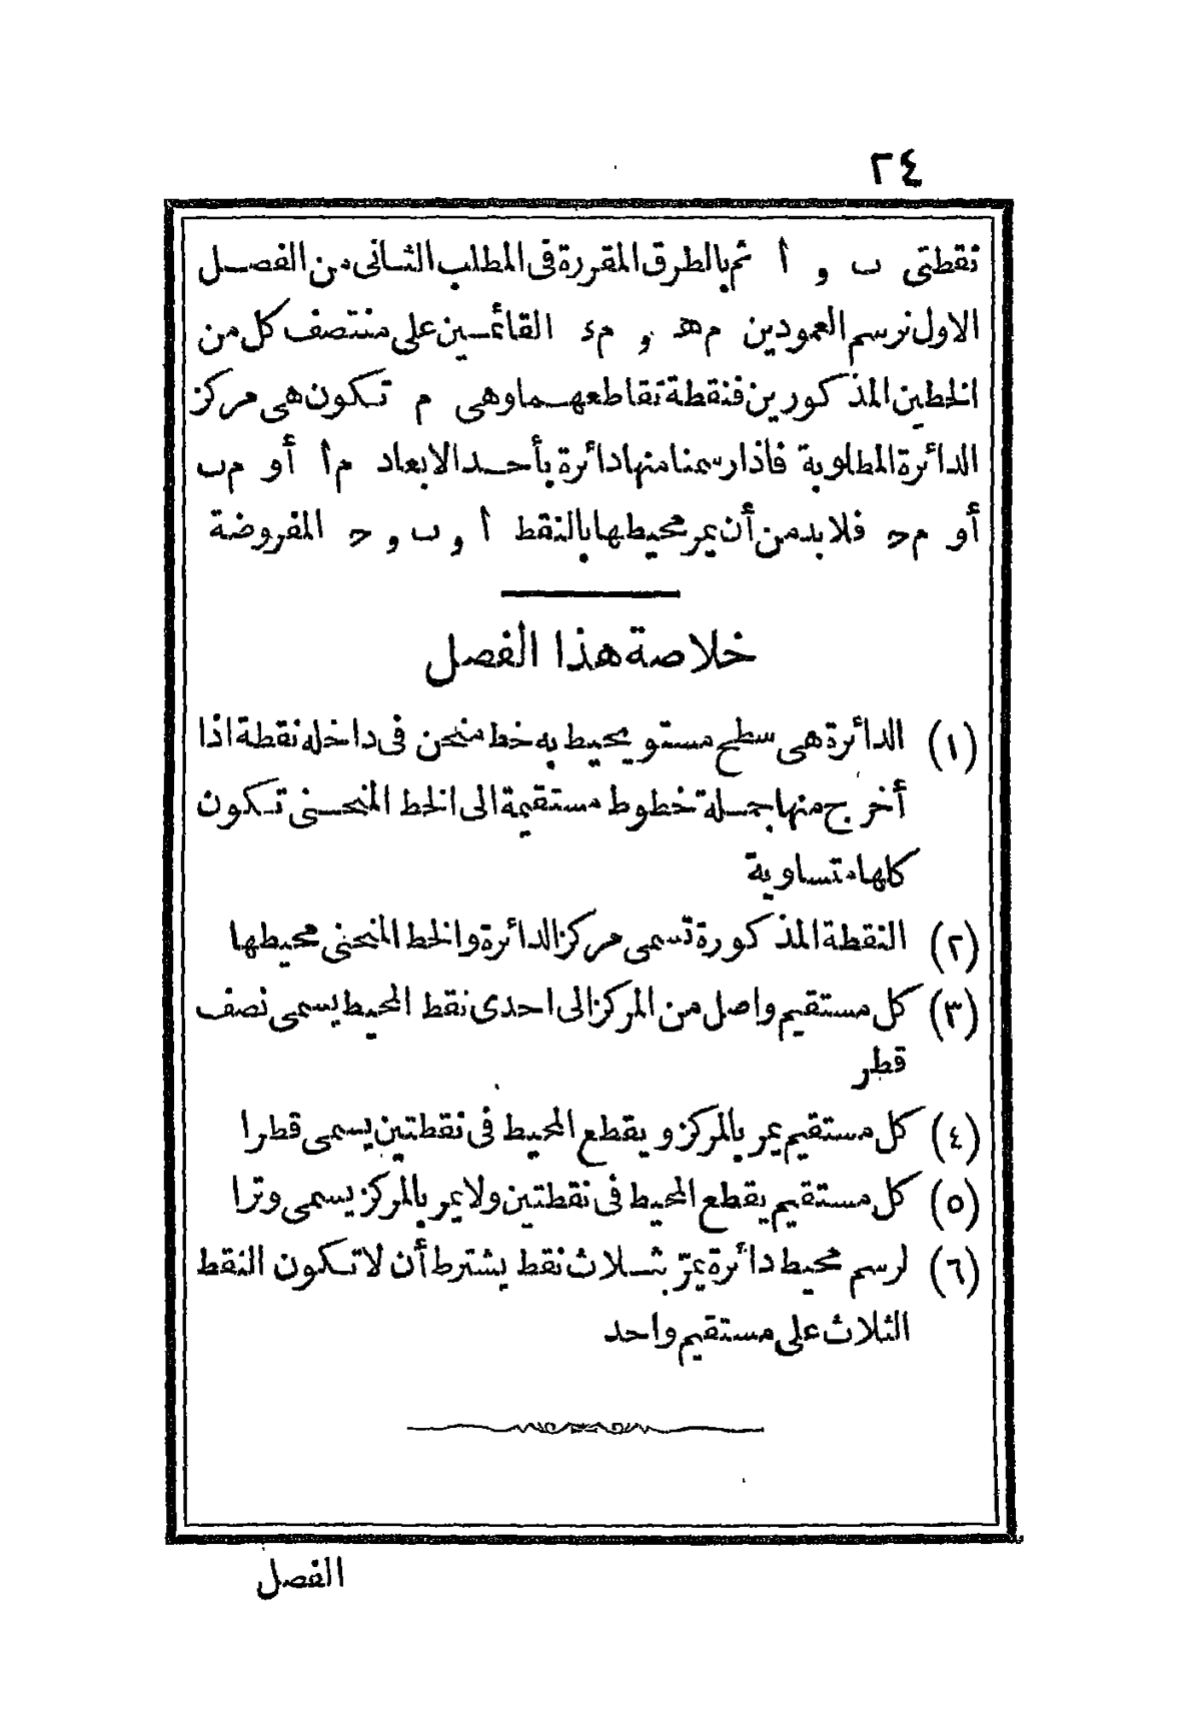 ٢٤
نقطتى ب و أ ثم بالطرق المقررة فى المطلب الثانى من الفصل
الاول نرسم العمودين م ھ و م ء القائمين على منتصف كل من
الخطين المذكورين فنقطة تقاطعهما وهى م تكون هى مركز
الدائرة المطلوبة فاذا رسمنا منها دائرة بأحد الابعاد م أ أو م ب
أو م ح فلا بد من أن يمر محيطها بالنقط أ و ب و ح المفروضة
خلاصة هذا الفصل
(١) الدائرة هى سطح مستو يحيط به خط منحن فى داخله نقطة اذا
أخرج منها جملة خطوط مستقيمة الى الخط المنحنى تكون
كلها متساوية
(٢) النقطة المذكورة تسمى مركز الدائرة والخط المنحنى محيطها
(٣) كل مستقيم واصل من المركز الى احدى نقط المحيط يسمى نصف
قطر
(٤) كل مستقيم يمر بالمركز ويقطع المحيط فى نقطتين يسمى قطرا
(٥) كل مستقيم يقطع المحيط فى نقطتين ولا يمر بالمركز يسمى وترا
(٦) لرسم محيط دائرة يمرّ بثلاث نقط يشترط أن لا تكون النقط
الثلاث على مستقيم واحد
الفصل